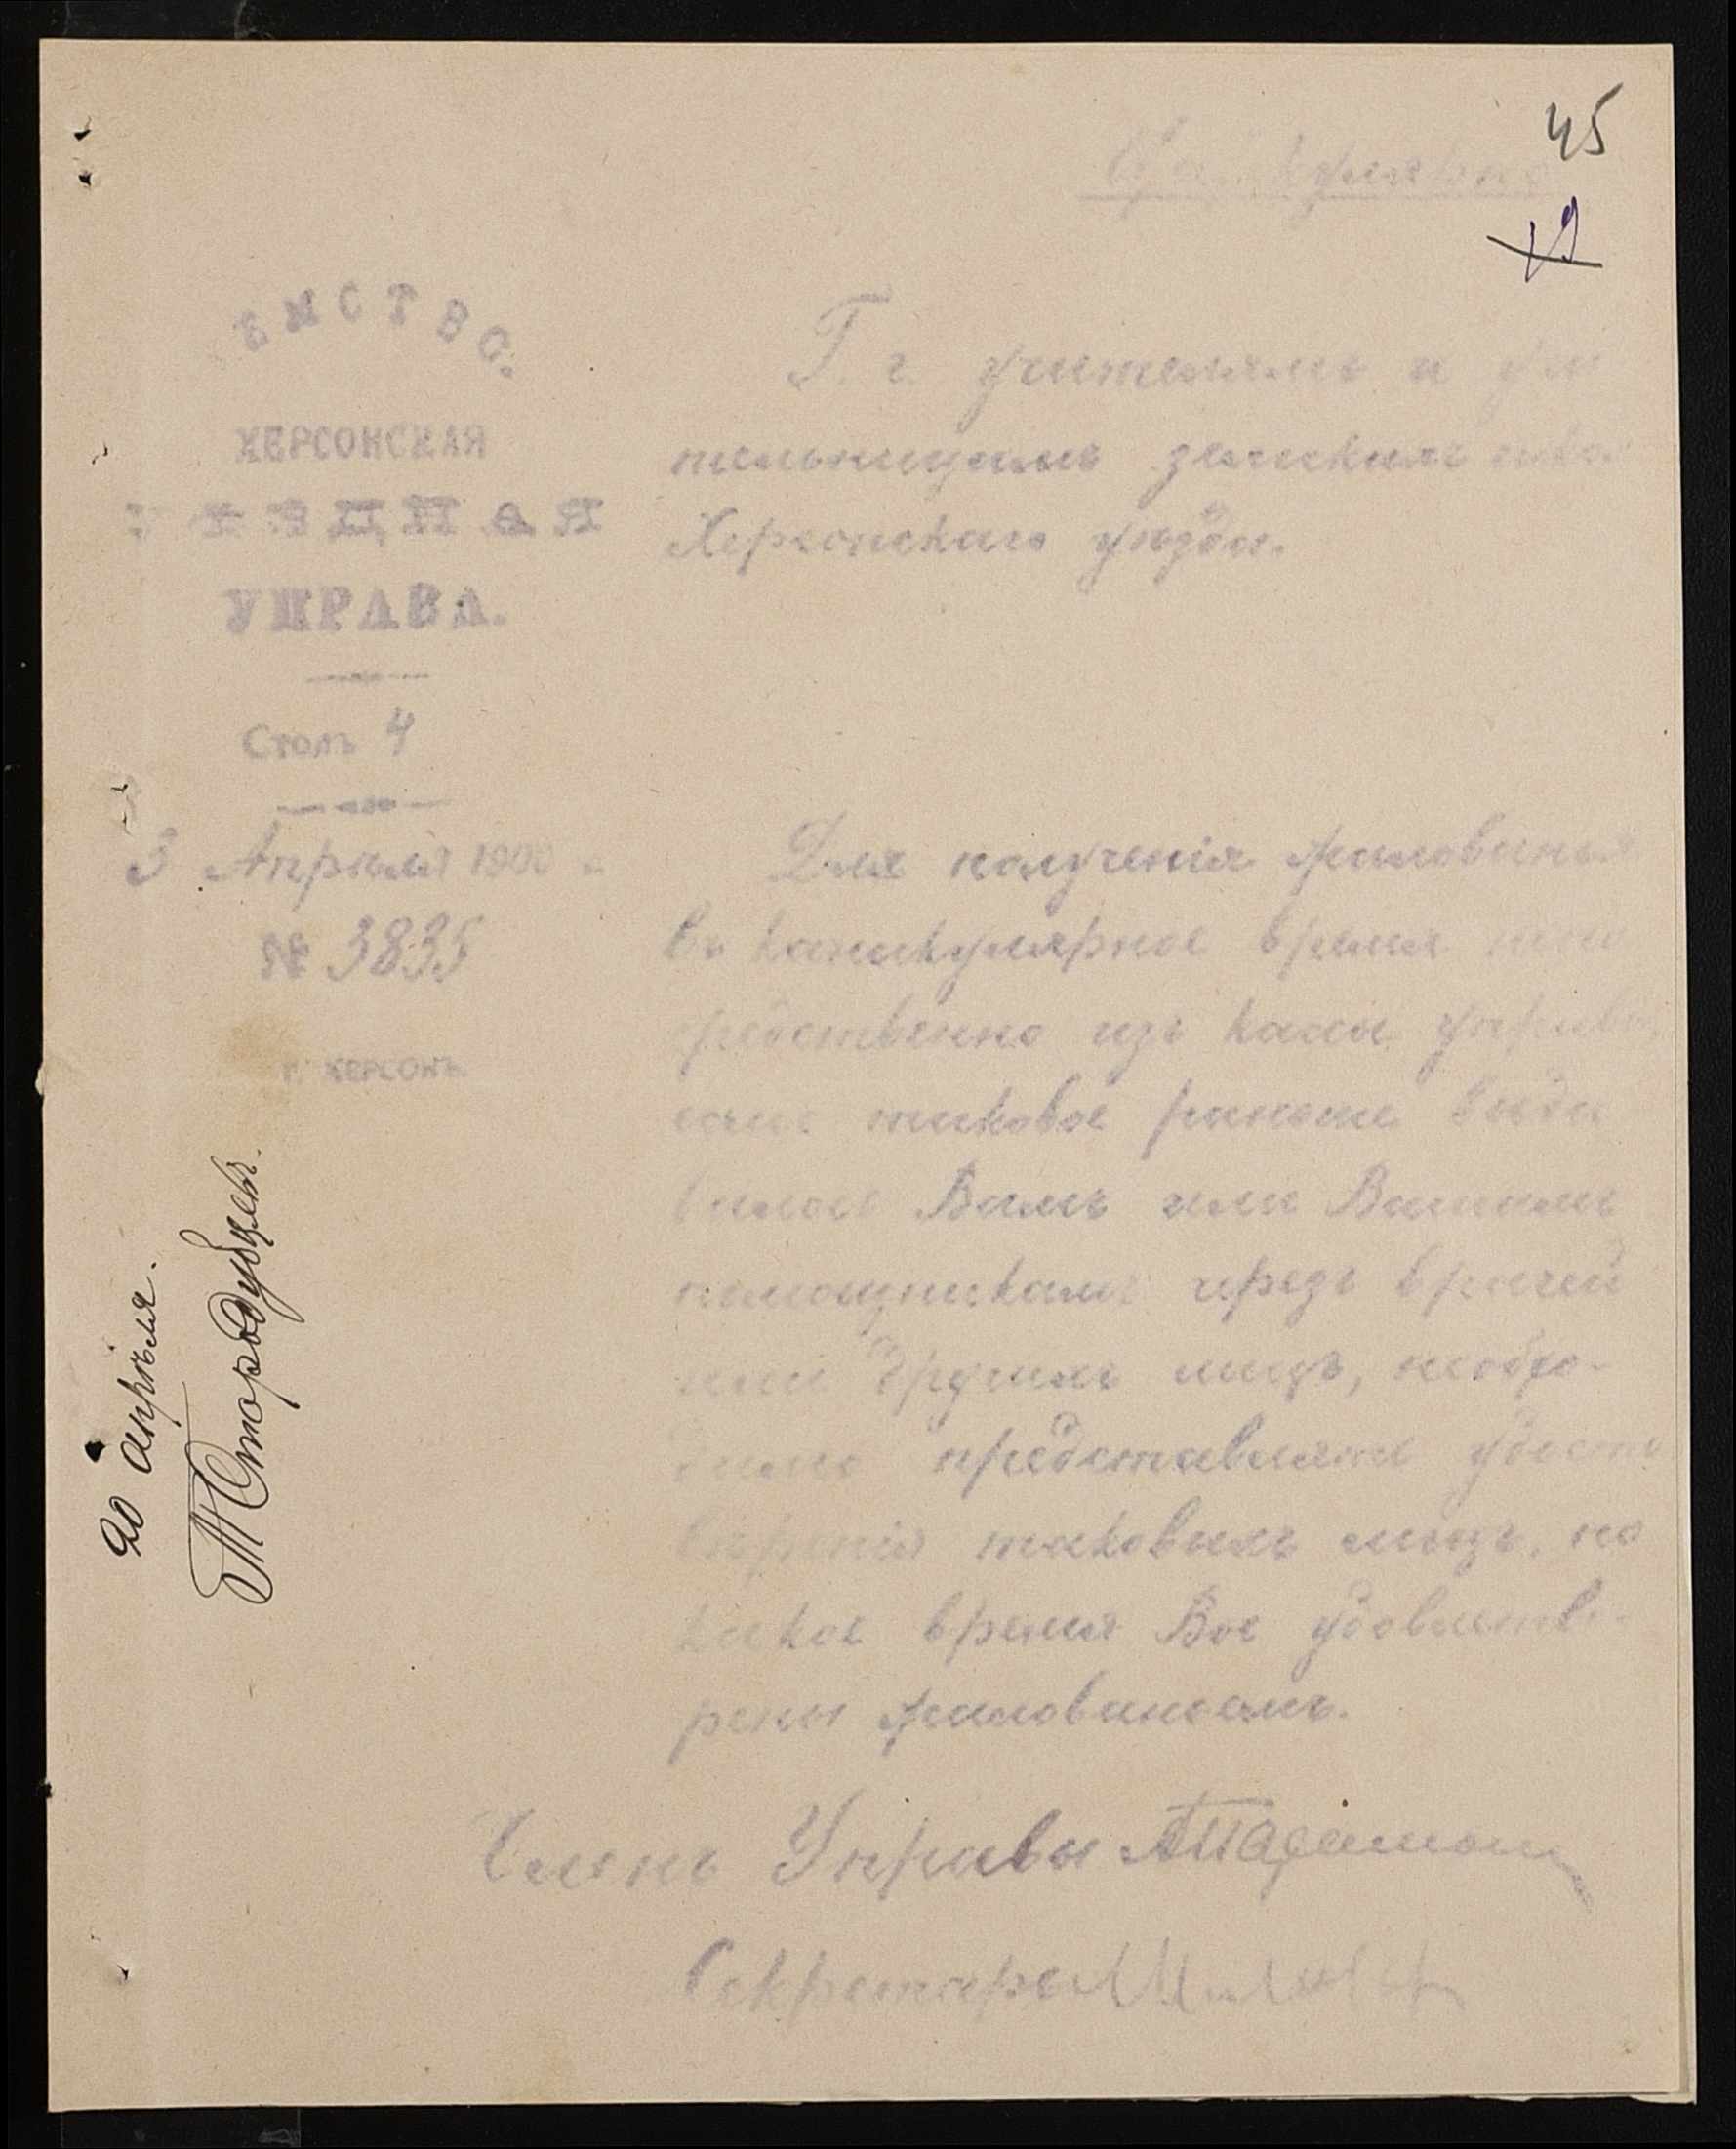 45
19
Циркулярно
ЕМСТВО.
ХЕРСОНСКАЯ
УПРАВА.
Столъ 4
3 Апрѣля 1900 г.
№ 3835
г. ХЕРСОНЪ.
Г. г. учителямъ и учи
тельницамъ земскихъ школ
Херсонскаго уѣзда.
Для полученія жалованья
въ каникулярное время непо
средственно изъ кассы управы,
если таковое раньше выда
валось Вамъ или Вашимъ
помощникамъ чрезъ врачей
или другихъ лицъ, необхо-
димо представлять удосто
вѣренія таковыхъ лицъ, по
какое время Вы удовлетво-
рены жалованьемъ.
Членъ Управы
Секретарь
20 апрѣля.